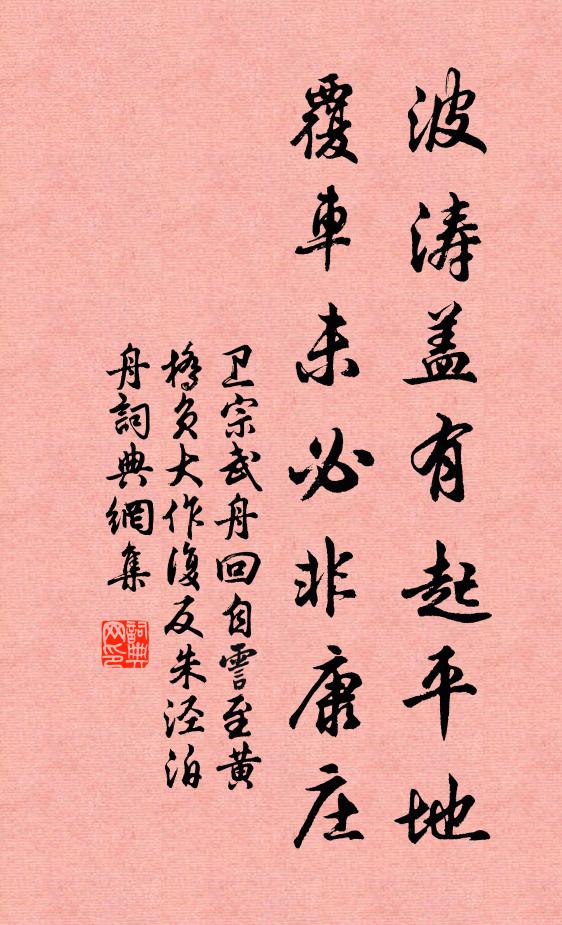 波涛盖有起平地
覆車未必非康庄
卫宗武舟回自霅至黄
橋负大作復反朱泾泊
舟詞典網集
詞典网印